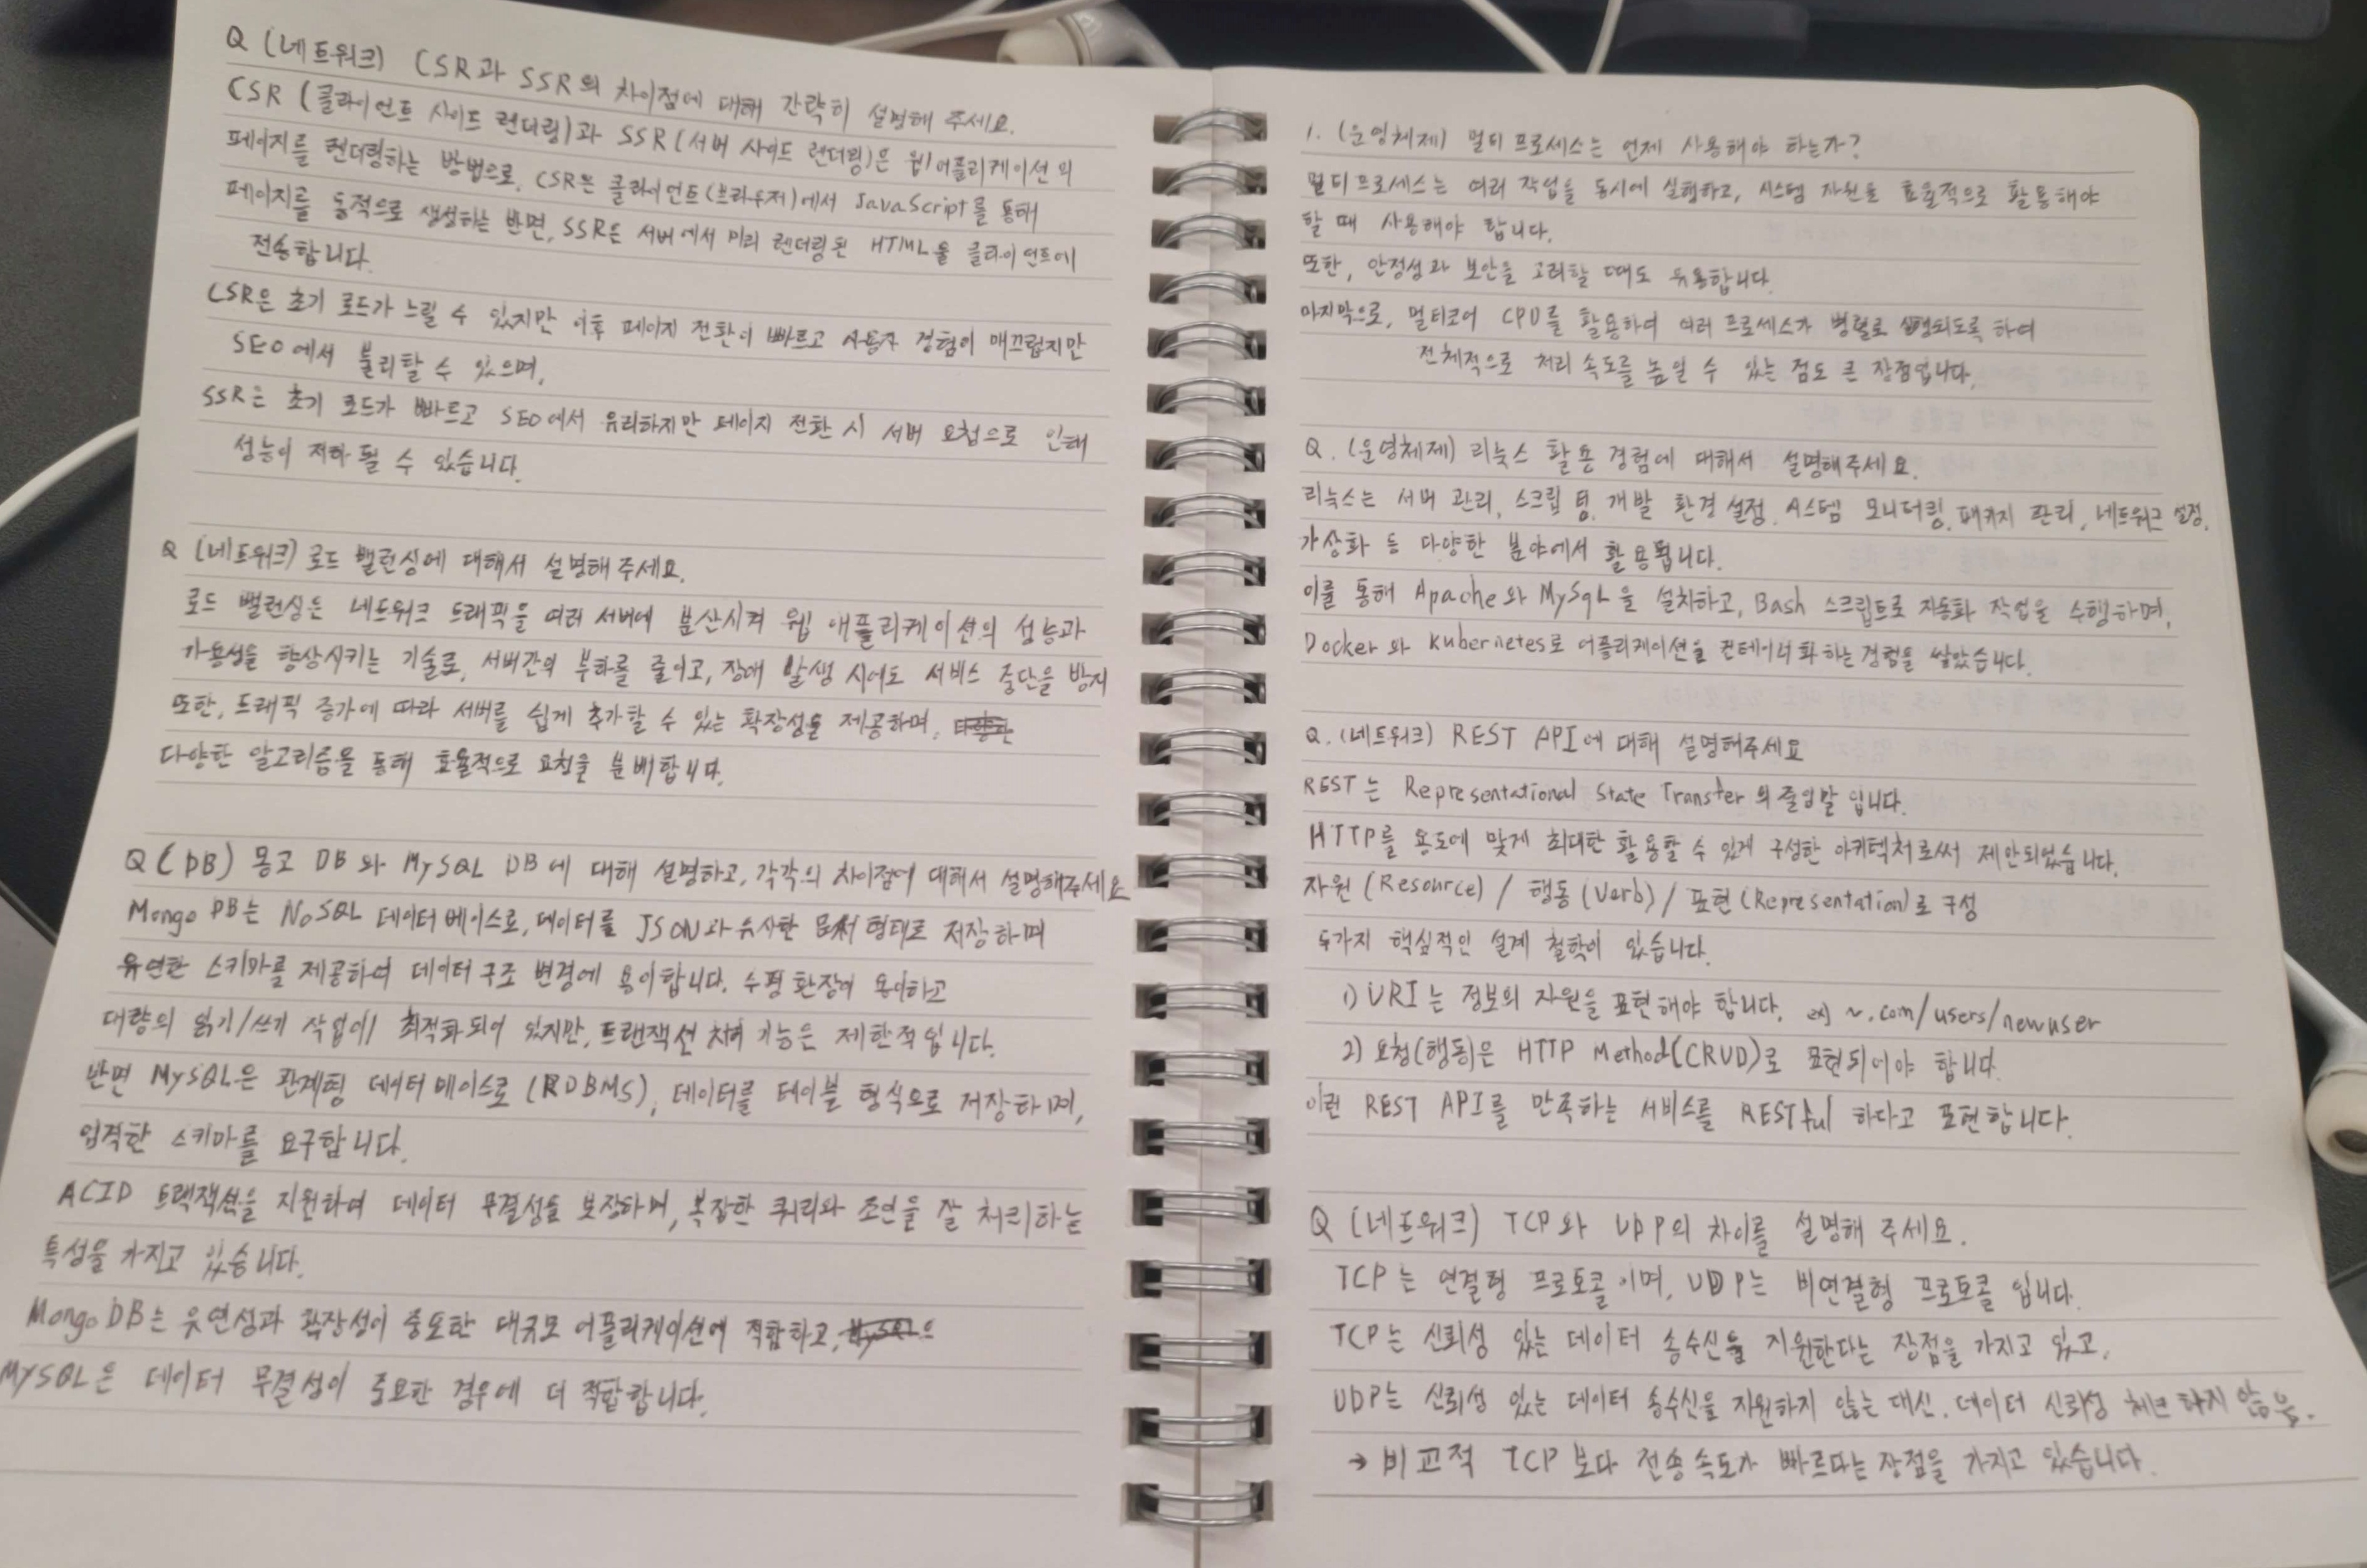 Q (네트워크) CSR과 SSR의 차이점에 대해 간략히 설명해 주세요.
CSR (클라이언트 사이드 렌더링)과 SSR (서버 사이드 렌더링)은 웹어플리케이션의
페이지를 렌더링하는 방법으로, CSR은 클라이언트(브라우저)에서 JavaScript를 통해
페이지를 동적으로 생성하는 반면, SSR은 서버에서 미리 렌더링된 HTML을 클라이언트에
전송합니다.
CSR은 초기 로드가 느릴 수 있지만 이후 페이지 전환이 빠르고 사용자 경험이 매끄럽지만
SEO에서 불리할 수 있으며,
SSR은 초기 로드가 빠르고 SEO에서 유리하지만 페이지 전환 시 서버 요청으로 인해
성능이 저하 될 수 있습니다.
Q (네트워크) 로드 밸런싱에 대해서 설명해 주세요.
로드 밸런싱은 네트워크 트래픽을 여러 서버에 분산시켜 웹 애플리케이션의 성능과
가용성을 향상시키는 기술로, 서버간의 부하를 줄이고, 장애 발생 시에도 서비스 중단을 방지
또한, 트래픽 증가에 따라 서버를 쉽게 추가할 수 있는 확장성을 제공하며,
다양한 알고리즘을 통해 효율적으로 요청을 분배합니다.
Q (DB) 몽고 DB와 MySQL DB에 대해 설명하고, 각각의 차이점에 대해서 설명해주세요
Mongo DB는 NoSQL 데이터 베이스로, 데이터를 JSON과 유사한 문서 형태로 저장하며
유연한 스키마를 제공하여 데이터 구조 변경에 용이합니다. 수평 확장이 용이하고
대량의 읽기/쓰기 작업에 최적화되어 있지만, 트랜잭션 처리 기능은 제한적입니다.
반면 MySQL은 관계형 데이터 베이스로 (RDBMS), 데이터를 테이블 형식으로 저장하며,
엄격한 스키마를 요구합니다.
ACID 트랙잭션을 지원하여 데이터 무결성을 보장하며, 복잡한 쿼리와 조인을 잘 처리하는
특성을 가지고 있습니다.
Mongo DB는 유연성과 확장성이 중요한 대규모 어플리케이션에 적합하고, MySQL은
MySQL은 데이터 무결성이 중요한 경우에 더 적합합니다.
1. (운영체제) 멀티 프로세스는 언제 사용해야 하는가?
멀티 프로세스는 여러 작업을 동시에 실행하고, 시스템 자원을 효율적으로 활용해야
할 때 사용해야 합니다.
또한, 안정성과 보안을 고려할 때도 유용합니다.
마지막으로, 멀티코어 CPU를 활용하여 여러 프로세스가 병렬로 실행되도록 하여
전체적으로 처리 속도를 높일 수 있는 점도 큰 장점입니다.
Q. (운영체제) 리눅스 활용 경험에 대해서 설명해주세요.
리눅스는 서버 관리, 스크립팅, 개발 환경 설정, 시스템 모니터링, 패키지 관리, 네트워크 설정,
가상화 등 다양한 분야에서 활용됩니다.
이를 통해 Apache와 MySqL을 설치하고, Bash 스크립트로 자동화 작업을 수행하며,
Docker와 Kubernetes로 어플리케이션을 컨테이너화하는 경험을 쌓았습니다.
Q. (네트워크) REST API에 대해 설명해주세요
REST는 Representational State Transfer의 줄임말 입니다.
HTTP를 용도에 맞게 최대한 활용할 수 있게 구성한 아키텍처로써 제안되었습니다.
자원 (Resource) / 행동 (Verb) / 표현 (Representation)로 구성
두가지 핵심적인 설계 철학이 있습니다.
1) URI는 정보의 자원을 표현해야 합니다. ex) ~.com/users/newuser
2) 요청(행동)은 HTTP Method(CRUD)로 표현되어야 합니다.
이런 REST API를 만족하는 서비스를 RESTful 하다고 표현합니다.
Q (네트워크) TCP와 UDP의 차이를 설명해 주세요.
TCP는 연결형 프로토콜이며, UDP는 비연결형 프로토콜 입니다.
TCP는 신뢰성 있는 데이터 송수신을 지원한다는 장점을 가지고 있고,
UDP는 신뢰성 있는 데이터 송수신을 지원하지 않는 대신, 데이터 신뢰성 체크 하지 않음.
→ 비교적 TCP 보다 전송 속도가 빠르다는 장점을 가지고 있습니다.